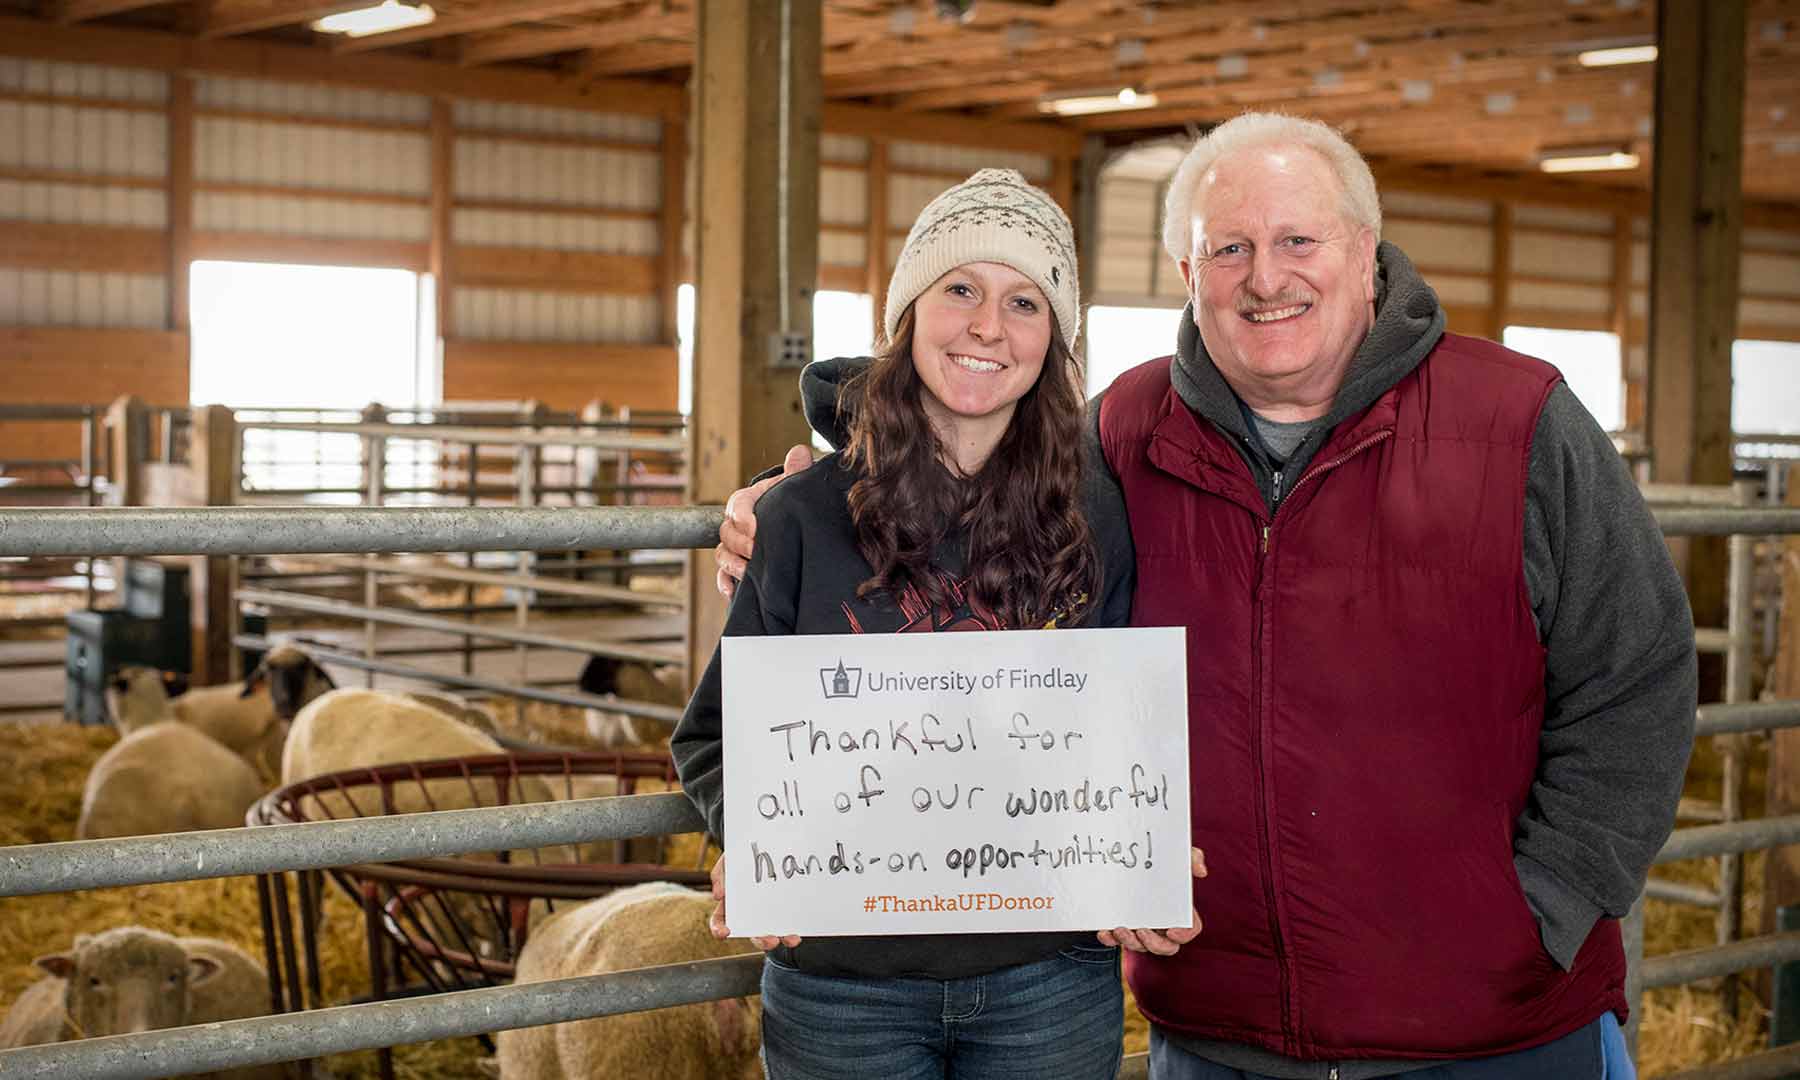 University of Findlay
Thankful for
all of our wonderful
hands-on opportunities!
#ThankaUFDonor